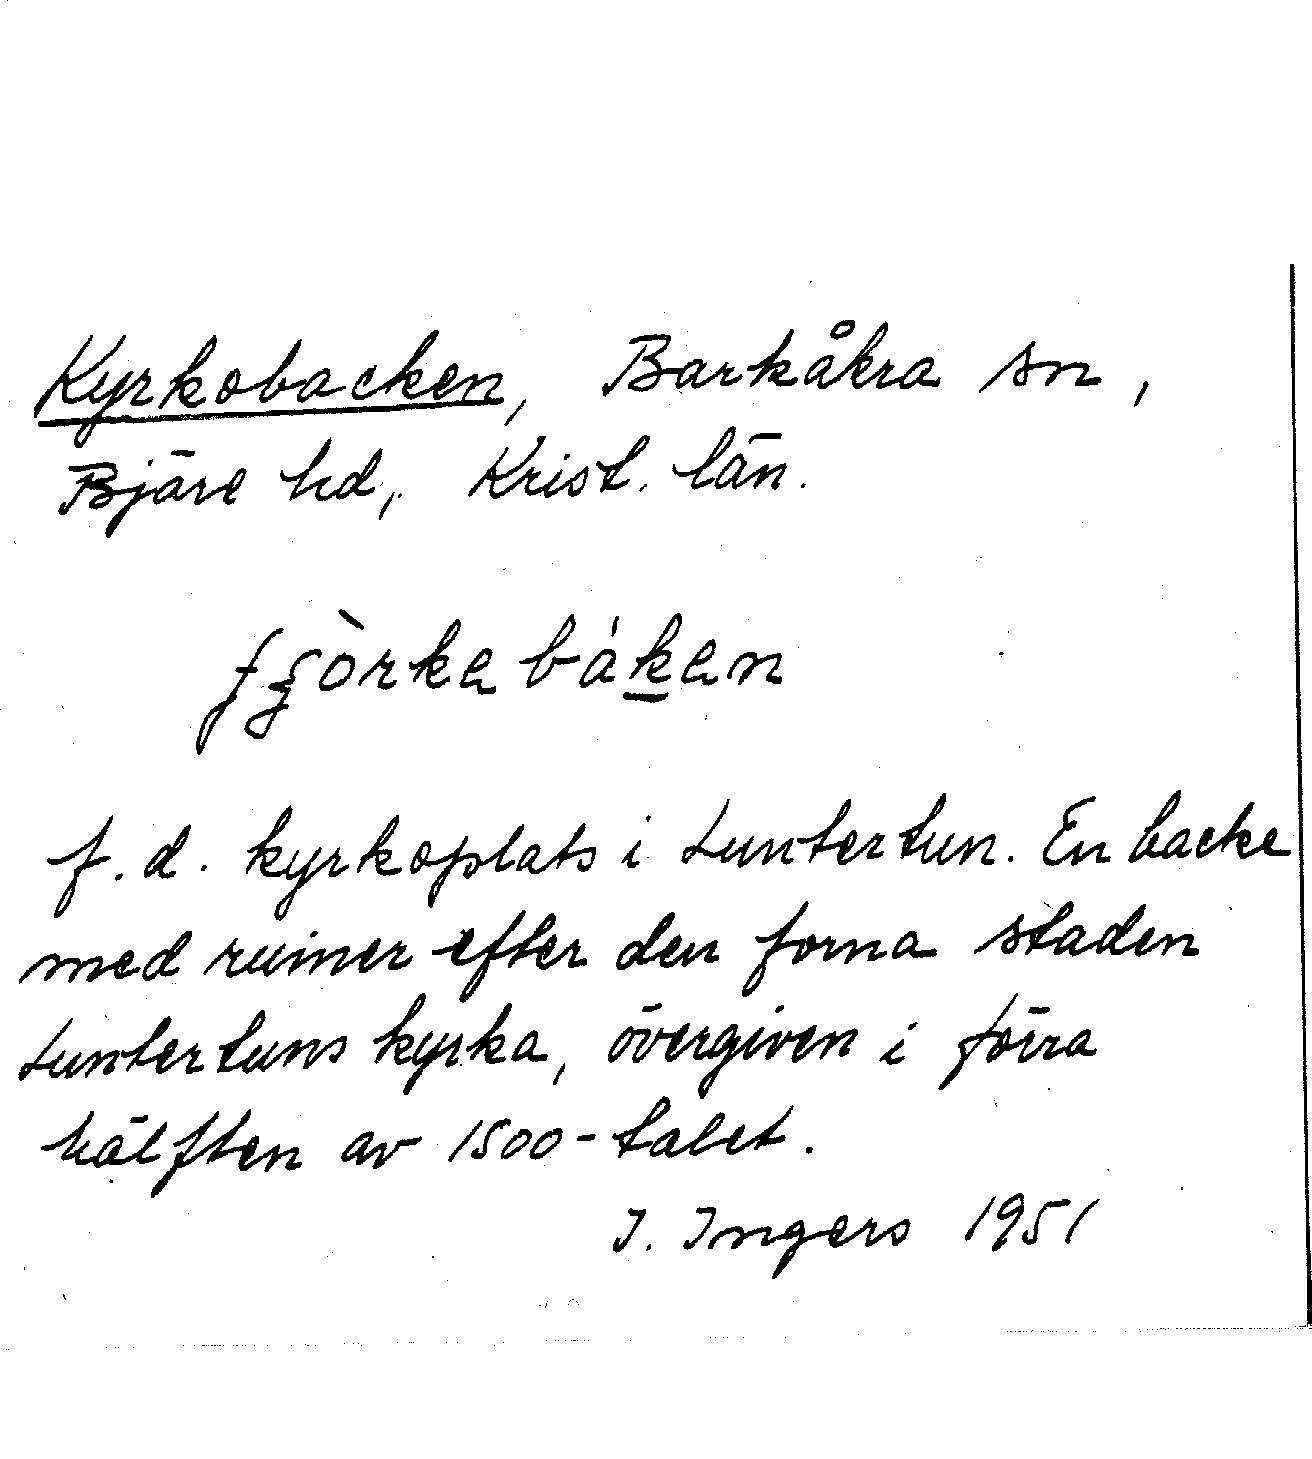 Kyrkobacken, Barkåkra sn,
Bjäre hd, Krist. län.
f. d. kyrkoplats i Luntertun. En backe
med ruiner efter den forna staden
Luntertuns kyrka, övergiven i förra
hälften av 1500-talet.
I. Ingers 1951